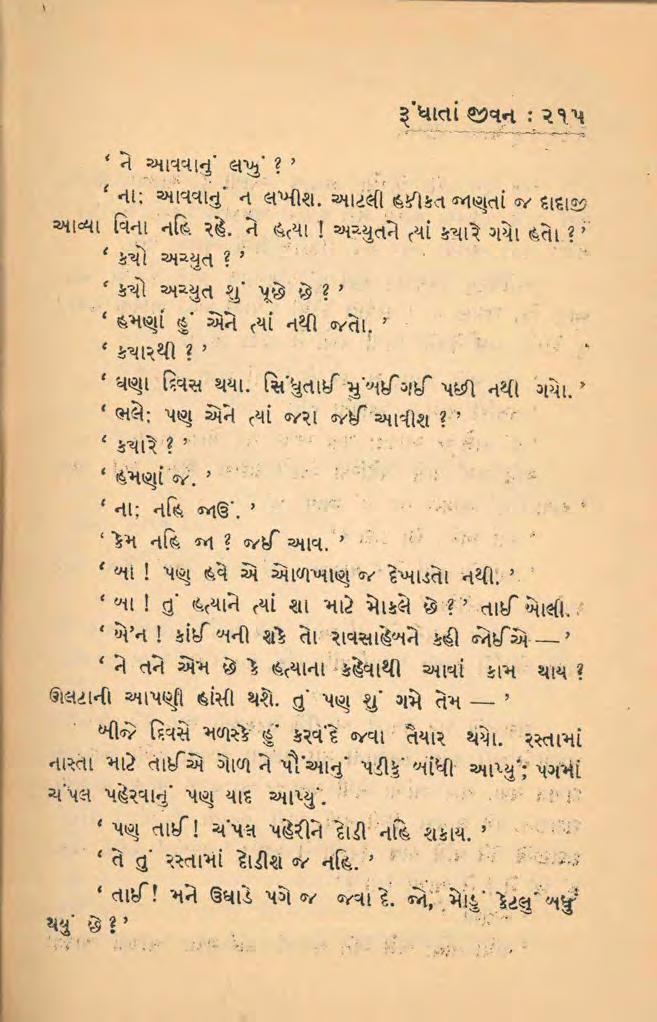 રૂંધાતાં જીવન : ૨૧૫
‘ ને આવવાનું લખું ? ’
‘ ના; આવવાનું ન લખીશ. આટલી હકીકત જાણતાં જ દાદાજી
આવ્યા વિના નહિ રહે. ને હત્યા ! અચ્યુતને ત્યાં ક્યારે ગયો હતો ? ’
‘ કયો અચ્યુત ? ’
‘ કયો અચ્યુત શું પૂછે છે ? ’
‘ હમણાં હું એને ત્યાં નથી જતો. ’
‘ ક્યારથી ? ’
‘ ઘણા દિવસ થયા. સિંધુતાઈ મુંબઈ ગઈ પછી નથી ગયો. ’
‘ ભલે; પણ એને ત્યાં જરા જઈ આવીશ ? ’
‘ ક્યારે ? ’
‘ હમણાં જ. ’
‘ ના; નહિ જાઉં. ’
‘ કેમ નહિ જા ? જઈ આવ. ’
‘ બા ! પણ હવે એ ઓળખાણ જ દેખાડતો નથી. ’
‘ બા ! તું હત્યાને ત્યાં શા માટે મોકલે છે ? ’ તાઈ બોલી.
‘ એ’ન ! કાંઈ બની શકે તો રાવસાહેબને કહી જોઈએ — ’
‘ ને તને એમ છે કે હત્યાના કહેવાથી આવાં કામ થાય ?
ઊલટાની આપણી હાંસી થશે. તું પણ શું ગમે તેમ — ’
બીજે દિવસે મળસ્કે હું કરવંદે જવા તૈયાર થયો. રસ્તામાં
નાસ્તા માટે તાઈએ ગોળ ને પૌંઆનું પડીકું બાંધી આપ્યું; પગમાં
ચંપલ પહેરવાનું પણ યાદ આપ્યું.
‘ પણ તાઈ ! ચંપલ પહેરીને દોડી નહિ શકાય. ’
‘ તે તું રસ્તામાં દોડીશ જ નહિ. ’
‘ તાઈ ! મને ઉઘાડે પગે જ જવા દે. જો, મોડું કેટલું બધું
થયું છે ? ’